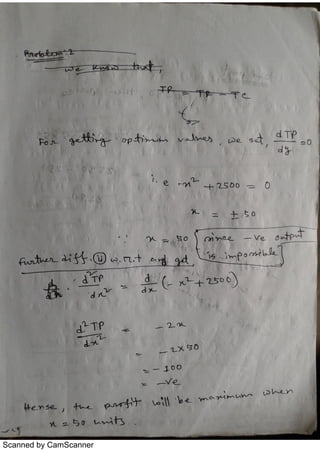 Problem-2
we know that,
TP = TR - TC
For getting optimum values, we set, dTP/dy = 0
i.e -x² + 2500 = 0
x = ± 50
∵ x = 50 [since -ve output is impossible]
Further diff. (ii) w.r.t and get
d²TP/dx² = d/dx (-x² + 2500)
d²TP/dx² = -2x
= -2×50
= -100
= -ve
Hense, the profit will be maximum when
x = 50 units.
Scanned by CamScanner